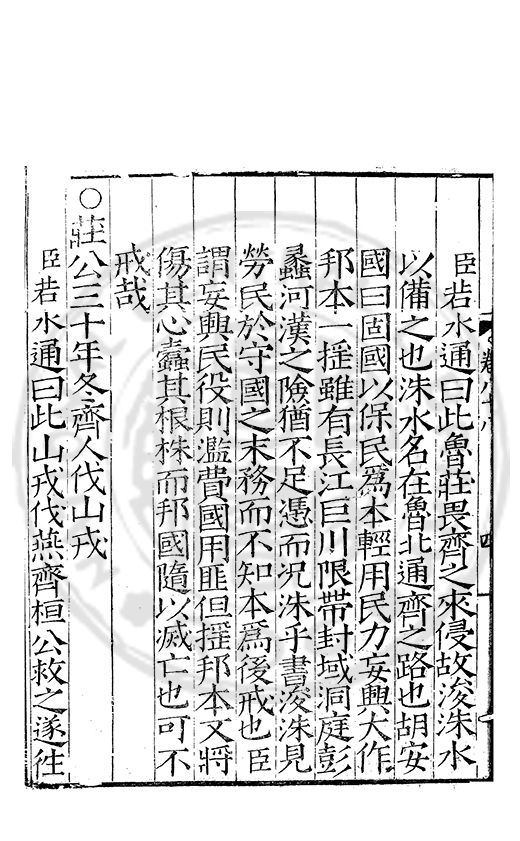 臣若水通曰此魯莊畏齊之來侵故浚洙水
以備之也洙水名在魯北通齊之路也胡安
國曰固國以保民爲本輕用民力妄興大作
邦本一揺雖有長江巨川限帶封域洞庭彭
蠡河漢之險猶不足憑而况洙乎書浚洙見
勞民於守國之末務而不知本爲後戒也臣
謂妄興民役則濫費國用匪但揺邦本又將
傷其心蠹其根株而邦國隨以滅亡也可不
戒哉
○莊公三十年冬齊人伐山戎
臣若水通曰此山戎伐燕齊桓公救之遂徃
卷八十八
四